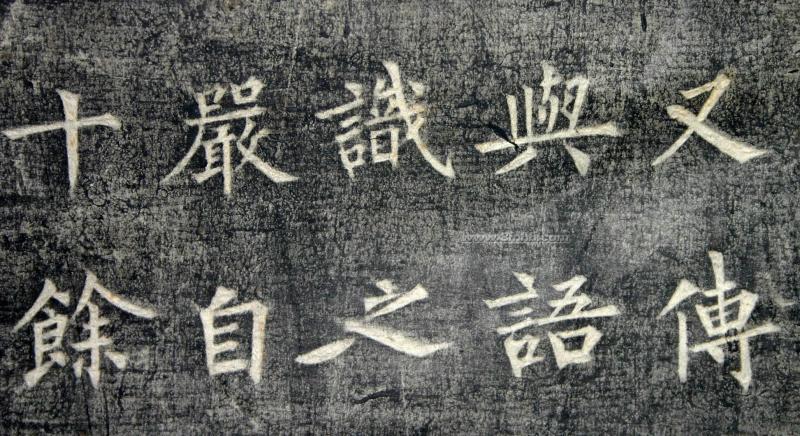 又傳
與語
識之
嚴自
十餘